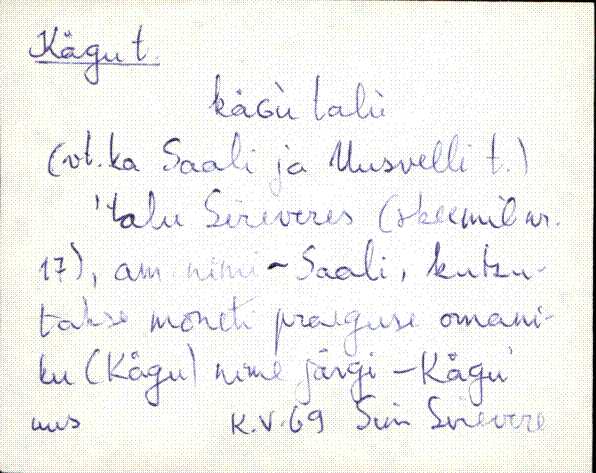 Kågu t.
kåGù talù
(vt. ka Saali ja Uusvelli t.)
'talu Sireveres (skeemil nr.
17), am. nimi - Saali, kutsu-
takse mõneti praeguse omani-
ku (Kågu) nime järgi - Kågu'
uus K.V. 69 Sim Sirevere